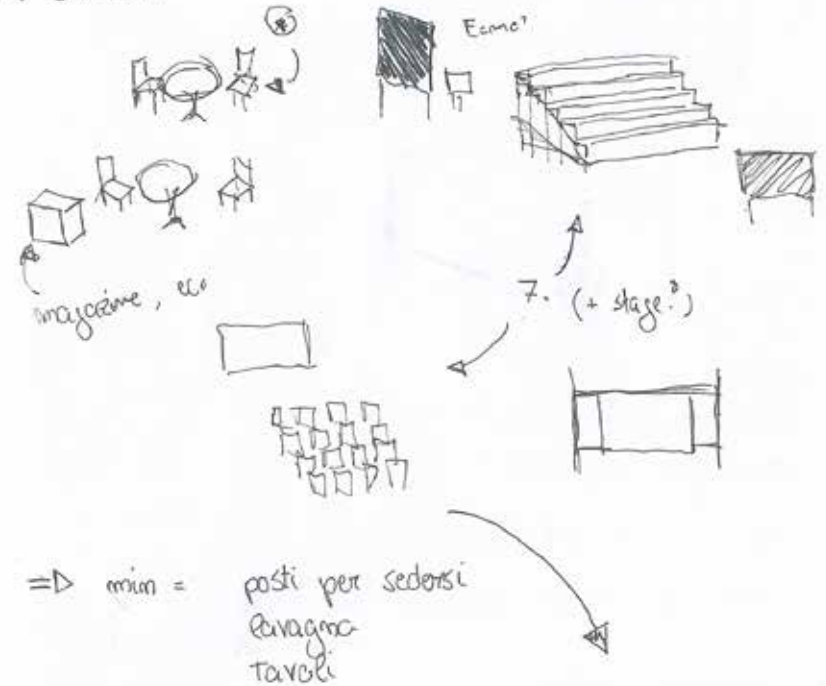 magazine, ecc
7. (+ stage?)
=▷ min = posti per sedersi
lavagna
tavoli